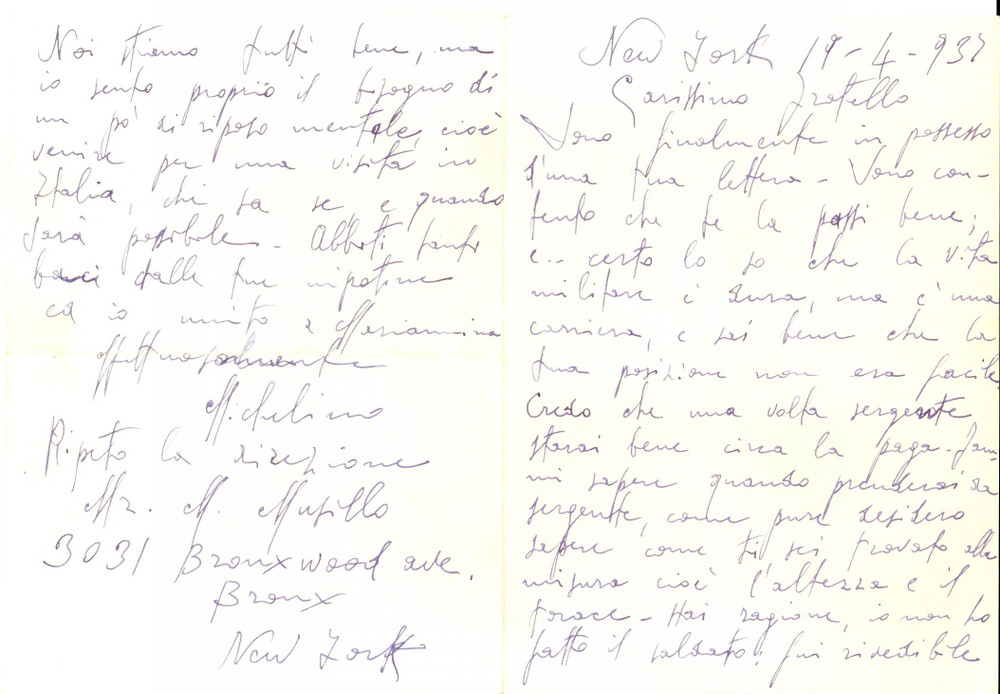 New York 19-4-937
Carissimo Fratello
Sono finalmente in possesso
d'una tua lettera - Sono con-
tento che te la passi bene;
e... certo lo so che la vita
militare è dura, ma è una
carriera, e sai bene che la
tua posizione non era facile.
Credo che una volta sergente
starai bene circa la paga - Fam-
mi sapere quando prenderai da
sergente, come pure desidero
sapere come ti sei trovato alla
misura cioè l'altezza e il
torace - Hai ragione, io non ho
fatto il soldato; fui rivedibile
Noi stiamo tutti bene, ma
io sento proprio il bisogno di
un pò di riposo mentale, cioè
venire per una visita in
Italia, chi sa se, e quando
sarà possibile - Abbiti tanti
baci dalle tue nipotine
ed io unito a Mariannina
Affettuosamente
Michelino
Ripeto la direzione
Mr. M. Musillo
3031 Bronxwood ave.
Bronx
New York